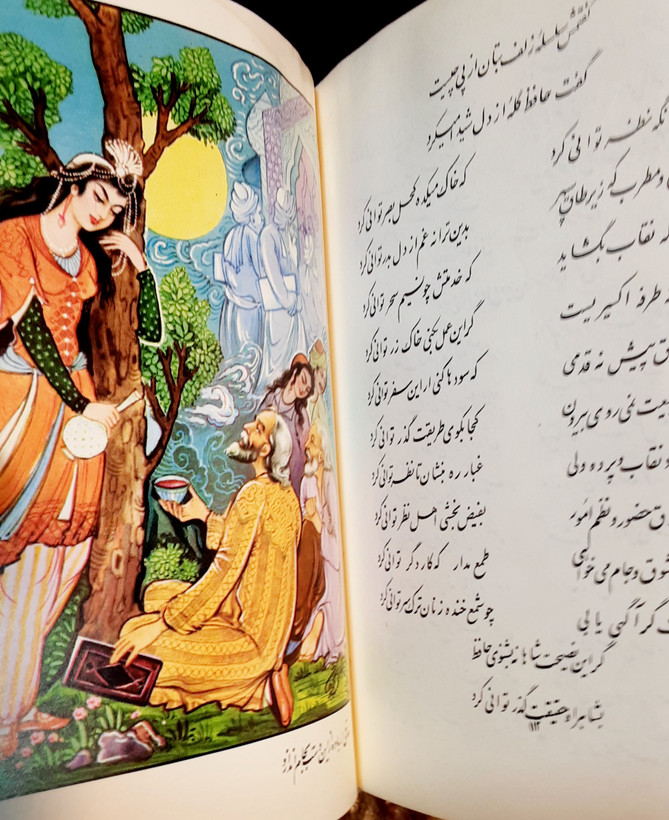 گفتمش سلسلهٔ زلف بتان از پی چیست
گفت حافظ گله‌ای از دل شیدا میکرد
نظر توانی کرد که خاک میکده کحل بصر توانی کرد
و مطرب که زیر طاق سپهر بدین ترانه غم از دل بدر توانی کرد
نقاب بگشاید که خدمتش چو نسیم سحر توانی کرد
طرفه اکسیریست گر این عمل بکنی خاک زر توانی کرد
پیش نه قدمی که سودها کنی ار این سفر توانی کرد
نمی روی بیرون کجا بکوی طریقت گذر توانی کرد
نقاب و پرده ولی غبار ره بنشان تا نظر توانی کرد
حضور و نظم امور بفیض بخشی اهل نظر توانی کرد
و جام می خواهی طمع مدار که کار دگر توانی کرد
گر آگهی یابی چو شمع خنده زنان ترک سر توانی کرد
گر این نصیحت شاهانه بشنوی حافظ
بشاهراه حقیقت گذر توانی کرد
۱۱۲